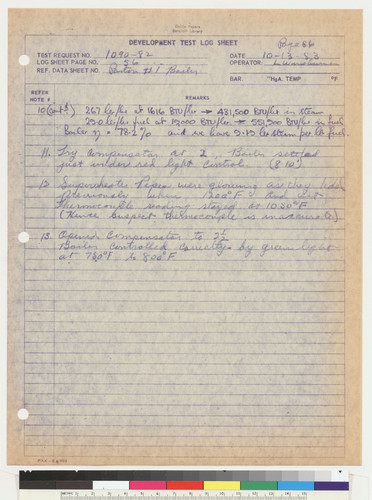 DEVELOPMENT TEST LOG SHEET Page 66
TEST REQUEST NO. 1090-82 DATE 10-13-83
LOG SHEET PAGE NO. 256 OPERATOR
REF. DATA SHEET NO. Boiler
BAR. "HgA. TEMP °F
REFER
NOTE # REMARKS
267 lbs/hr at 1616 BTU/lbs → 431,500 BTU/hr in steam
BTU/lbs = 551,500 BTU/hr in fuel
Boiler η = 78.2% and we have lbs steam per lb fuel.
11. Try compensator at 2. Boiler settled
just under red light control. (8 10")
12. Superheater Pipes were glowing
when 1200°F and yet
thermocouple reading stayed at 1030°F
(Hence suspect thermocouple is inaccurate)
13. Opened Compensator to 2½
Boiler controlled correctly by green light
at 760°F to 800°F